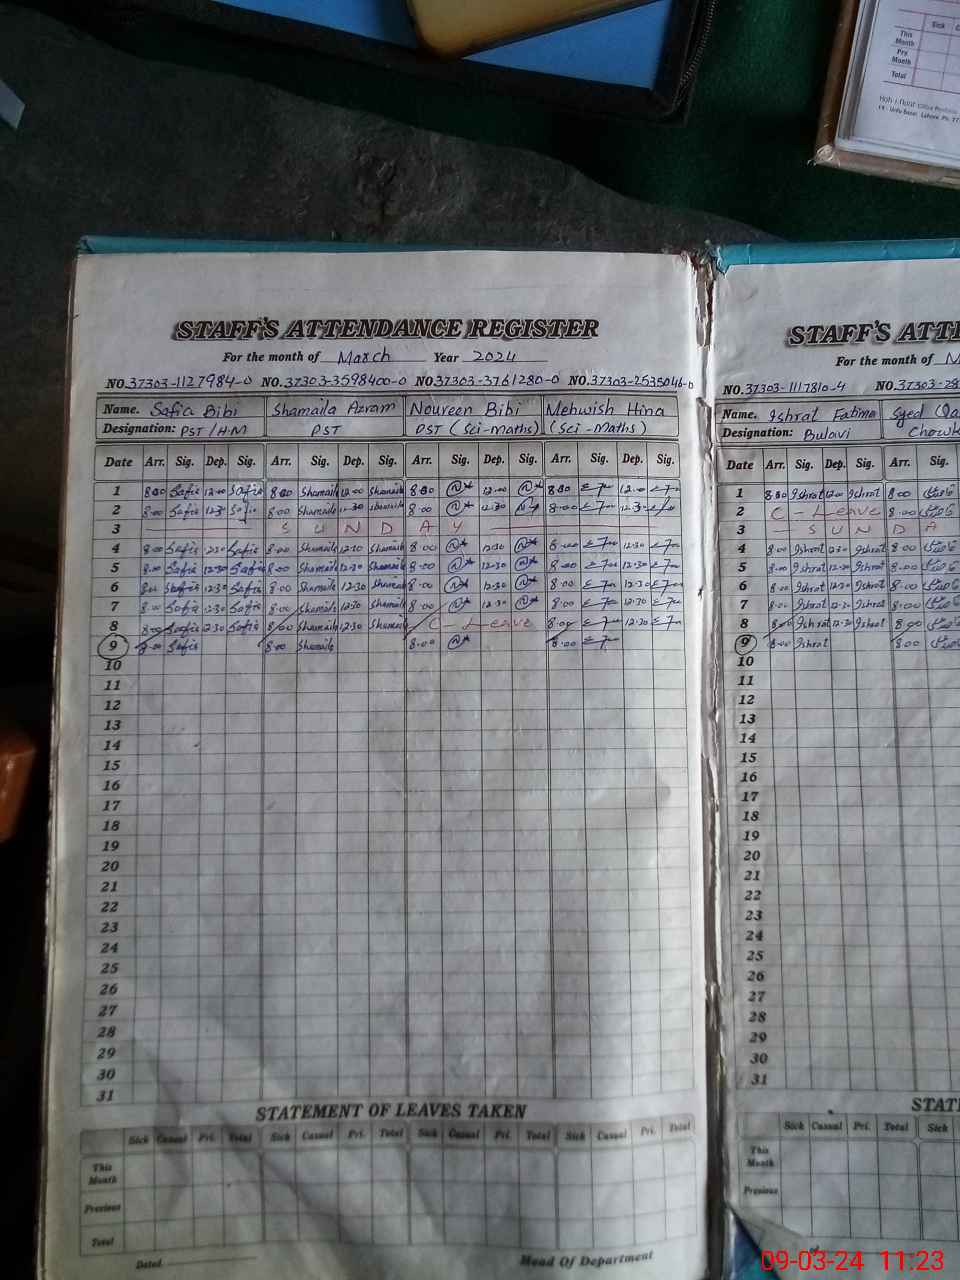 Sick
This Month
Pre Month
Total
STAFF'S ATTENDANCE REGISTER
For the month of March Year 2024
NO. 37303-1127984-0 NO. 37303-3598400-0 NO 37303-3761280-0 NO. 37303-2535046-0
Name. Safia Bibi Shamaila Azram Noureen Bibi Mehwish Hina
Designation: PST/H.M PST PST (Sci-Maths) (Sci-Maths)
Date Arr. Sig. Dep. Sig. Arr. Sig. Dep. Sig. Arr. Sig. Dep. Sig. Arr. Sig. Dep. Sig.
1 8:00 Safia 12:00 Safia 8:00 Shamaila 12:00 Shamaila 8:00 12:00 8:00 12:00
2 8:00 Safia 12:30 Safia 8:00 Shamaila 12:30 Shamaila 8:00 12:30 8:00 12:30
3 SUNDAY
4 8:00 Safia 12:30 Safia 8:00 Shamaila 12:30 Shamaila 8:00 12:30 8:00 12:30
5 8:00 Safia 12:30 Safia 8:00 Shamaila 12:30 Shamaila 8:00 12:30 8:00 12:30
6 8:00 Safia 12:30 Safia 8:00 Shamaila 12:30 Shamaila 8:00 12:30 8:00 12:30
7 8:00 Safia 12:30 Safia 8:00 Shamaila 12:30 Shamaila 8:00 12:30 8:00 12:30
8 8:00 Safia 12:30 Safia 8:00 Shamaila 12:30 Shamaila C-Leave 8:00 12:30
9 8:00 Safia 8:00 Shamaila 8:00 8:00
10
11
12
13
14
15
16
17
18
19
20
21
22
23
24
25
26
27
28
29
30
31
STATEMENT OF LEAVES TAKEN
Sick Casual Pri. Total Sick Casual Pri. Total Sick Casual Pri. Total Sick Casual Pri. Total
This Month
Previous
Total
Dated
Head Of Department
STAFF'S ATTE
For the month of M
NO. 37303-1117810-4 NO. 37303-28
Name. Ishrat Fatima Syed
Designation: Bulavi Chowk
Date Arr. Sig. Dep. Sig. Arr. Sig.
1 8:00 Ishrat 12:00 Ishrat 8:00
2 C-Leave 8:00
3 SUNDA
4 8:00 Ishrat 12:30 Ishrat 8:00
5 8:00 Ishrat 12:30 Ishrat 8:00
6 8:00 Ishrat 12:30 Ishrat 8:00
7 8:00 Ishrat 12:30 Ishrat 8:00
8 8:00 Ishrat 12:30 Ishrat 8:00
9 8:00 Ishrat 8:00
10
11
12
13
14
15
16
17
18
19
20
21
22
23
24
25
26
27
28
29
30
31
STATE
Sick Casual Pri. Total Sick
This Month
Previous
09-03-24 11:23